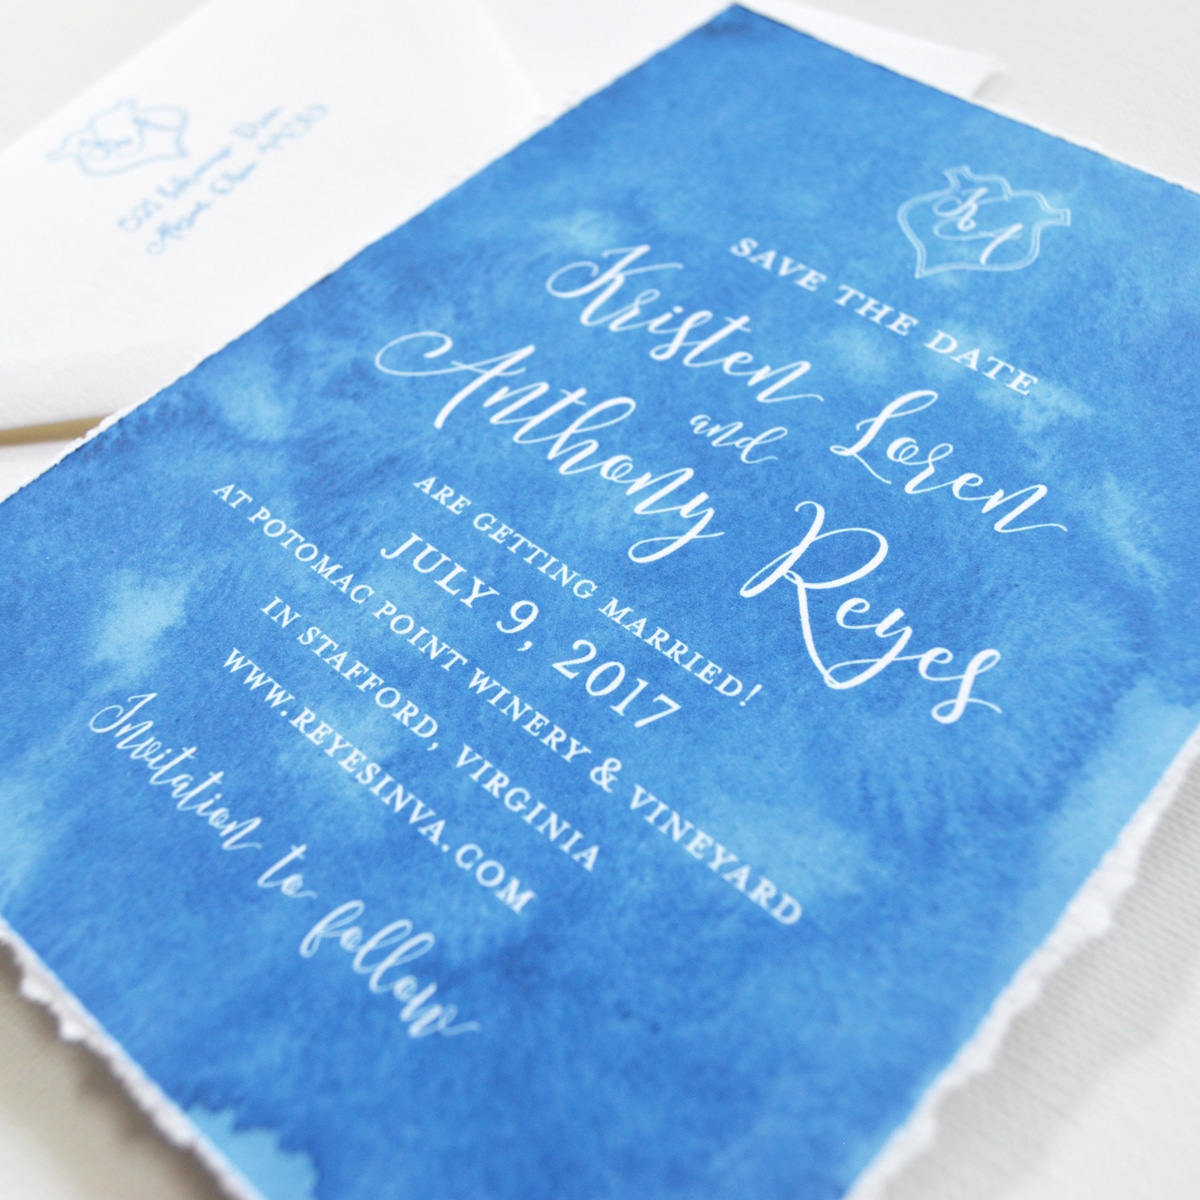 K
A
SAVE THE DATE
Kristen Loren
and
Anthony Reyes
ARE GETTING MARRIED!
JULY 9, 2017
AT POTOMAC POINT WINERY & VINEYARD
IN STAFFORD, VIRGINIA
WWW.REYESINVA.COM
Invitation to follow